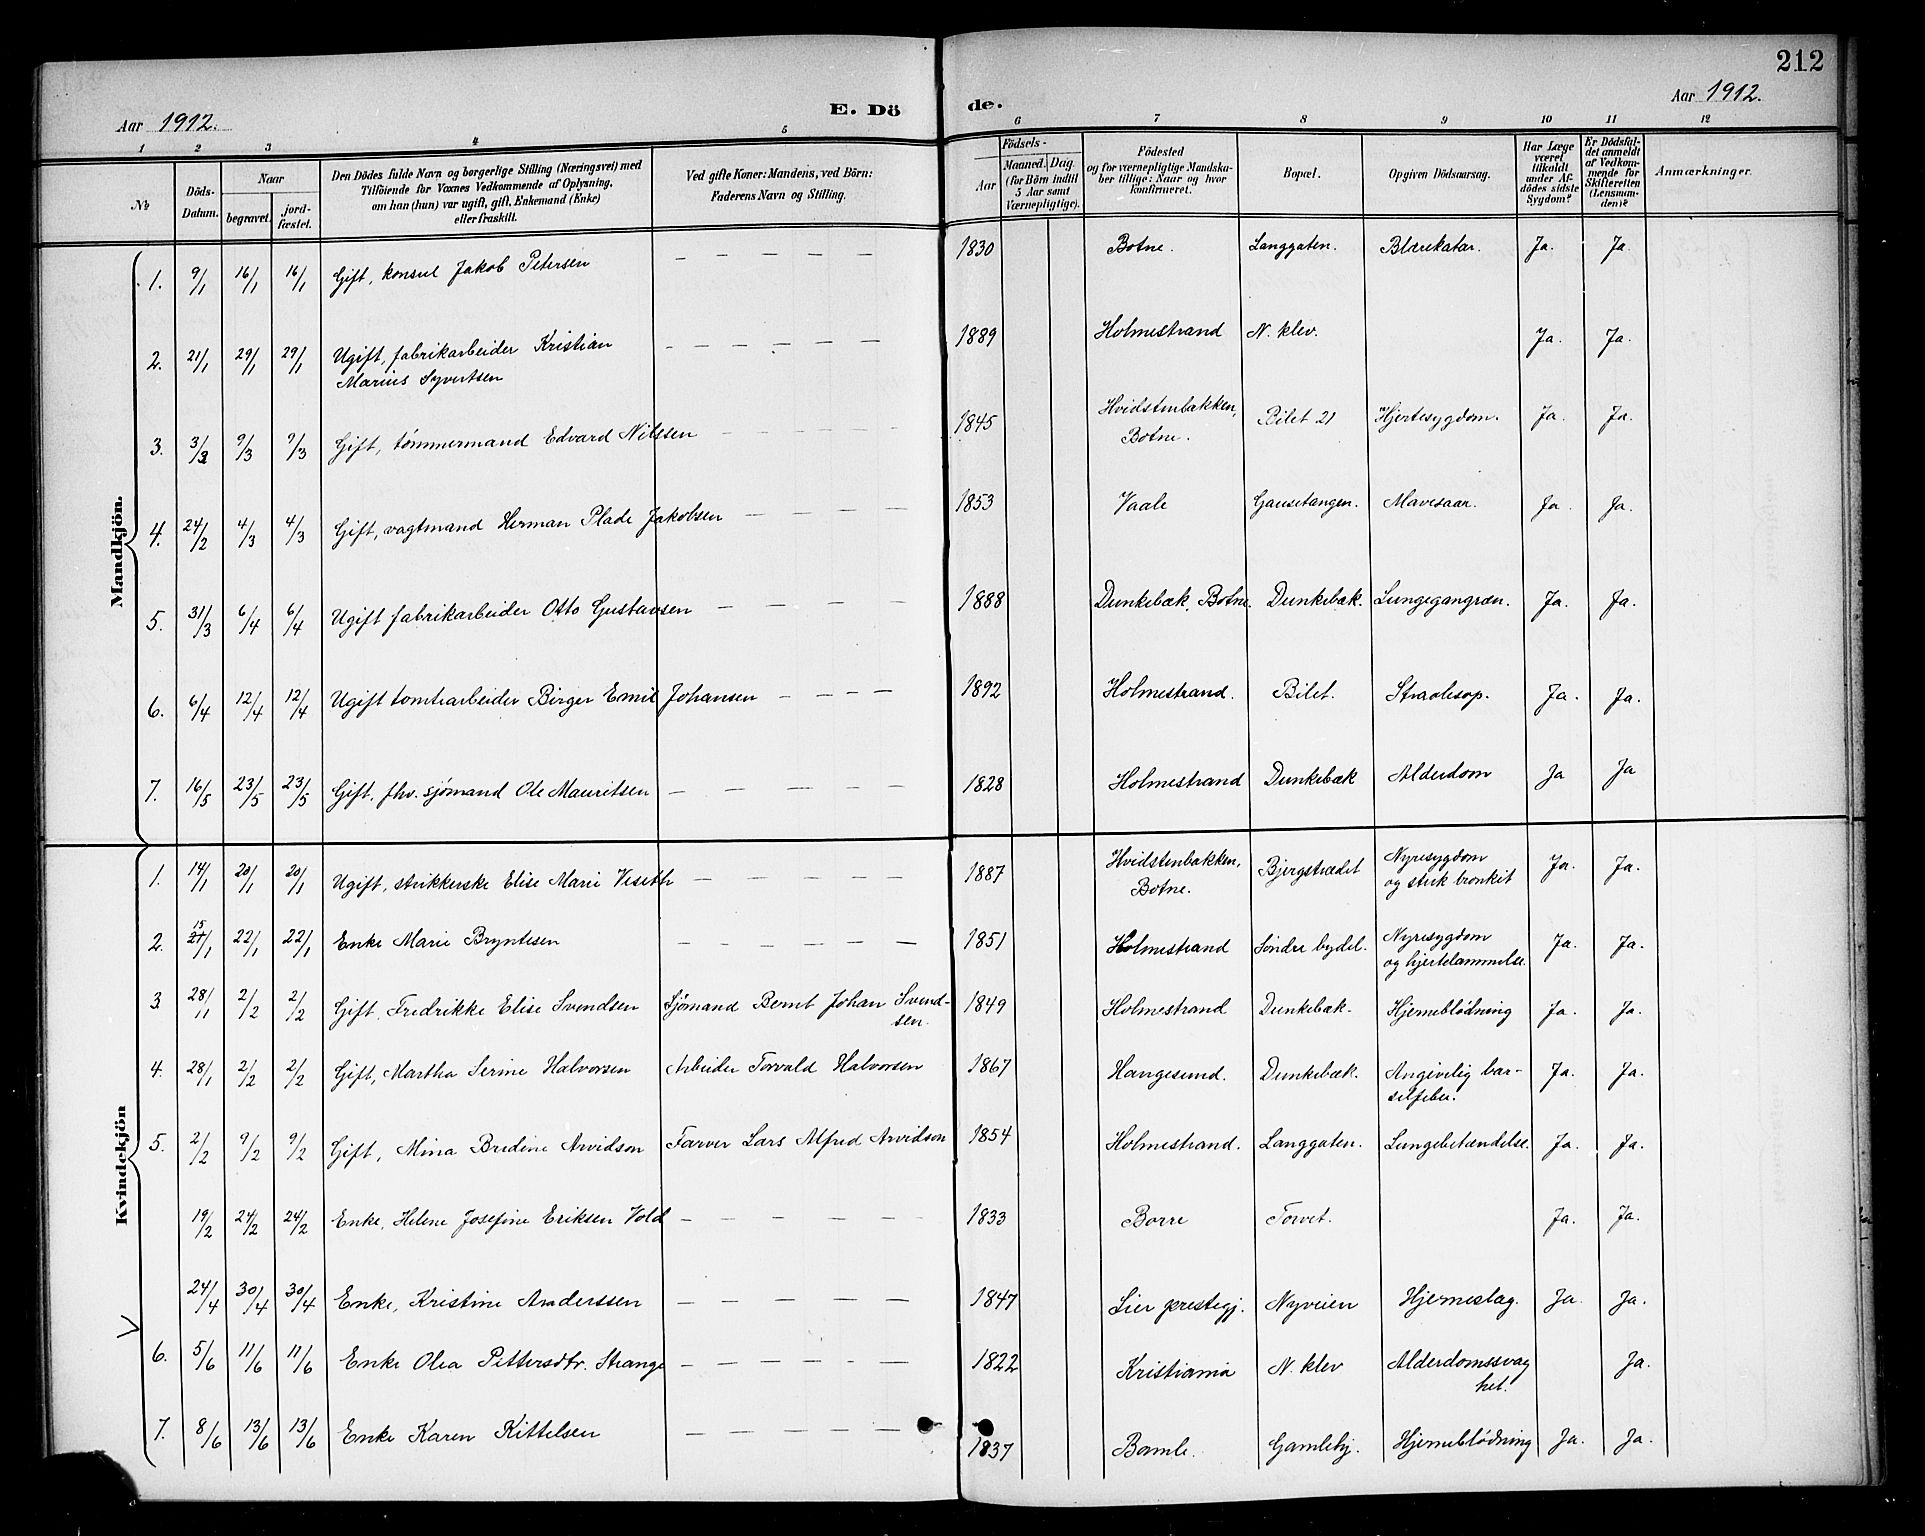 212
Aar 1912.
E. Dö
de.
Aar 1912.
1 2 3 4 5 6 7 8 9 10 11 12
No
Döds-
Datum.
Naar
begravet.
jord-
fæstet.
Den Dödes fulde Navn og borgerlige Stilling (Næringsvei) med
Tilföiende for Voxnes Vedkommende af Oplysning,
om han (hun) var ugift, gift, Enkemand (Enke)
eller fraskilt.
Ved gifte Koner: Mandens, ved Börn:
Faderens Navn og Stilling.
Födsels-
Aar
Maaned.
Dag.
(for Börn indtil
5 Aar samt
Værnepligtige).
Födested
og for værnepligtige Mandska-
ber tillige: Naar og hvor
konfirmeret.
Bopæl.
Opgiven Dödsaarsag.
Har Læge
været
tilkaldt
under Af-
dödes sidste
Sygdom?
Er Dödsfal-
det anmeldt
af Vedkom-
mende for
Skifteretten
(Lensman-
den)?
Anmærkninger.
Mandkjön.
1. 9/1 16/1 16/1 Gift, konsul Jakob Petersen — — — — — 1830 Botne. Langgaten. Blærekatar. Ja. Ja.
2. 21/1 29/1 29/1 Ugift, fabrikarbeider Kristian — — — — — — 1889 Holmestrand N. klev. Ja. Ja.
Marius Syvertsen
3. 3/3 9/3 9/3 Gift, tømmermand Edvard Nilssen — — — — — 1845 Hvidstenbakken, Bilet 21 Hjertesygdom. Ja. Ja.
Botne.
4. 24/2 4/3 4/3 Gift, vagtmand Herman Plade Jakobsen — — — — 1853 Vaale Gausetangen. Mavesaar. Ja. Ja.
5. 31/3 6/4 6/4 Ugift fabrikarbeider Otto Gustavsen — — — — — 1888 Dunkebæk, Botne. Dunkebæk. Lungegangræn. Ja. Ja.
6. 6/4 12/4 12/4 Ugift tomtearbeider Birger Emil Johansen — — — — 1892 Holmestrand. Bilet. Straalesop. Ja. Ja.
7. 16/5 23/5 23/5 Gift. fhv. sjømand Ole Mauritsen — — — — — 1828 Holmestrand Dunkebæk Alderdom Ja Ja
Kvindekjön
1. 14/1 20/1 20/1 Ugift, strikkerske Elise Marie Viseth — — — — — — 1887 Hvidstenbakken, Bjergstrædet Nyresygdom Ja. Ja.
Botne. og sterk bronkit
2. 15/1 22/1 22/1 Enke Marie Bryntesen — — — — — — 1851 Holmestrand Søndre bydel. Nyresygdom Ja. Ja.
og hjertelammelse.
3. 28/11 2/2 2/2 Gift, Fredrikke Elise Svendsen Sjømand Bernt Johan Svend- 1849 Holmestrand Dunkebæk. Hjerneblødning Ja. Ja.
sen.
4. 28/1 2/2 2/2 Gift, Martha Serine Halvorsen Arbeider Torvald Halvorsen 1867 Haugesund. Dunkebæk. Angivelig bar- Ja. Ja.
selfeber.
5. 2/2 9/2 9/2 Gift, Mina Bredine Arvidson Farver Lars Alfred Arvidson 1854 Holmestrand. Langgaten. Lungebetændelse. Ja. Ja.
19/2 24/2 24/2 Enke, Helene Josefine Eriksen Vold — — — — — — 1833 Borre Torvet. Ja. Ja.
24/4 30/4 30/4 Enke, Kristine Anderssen — — — — — — 1847 Lier prestegj. Nyveien Hjerneslag. Ja. Ja.
6. 5/6 11/6 11/6 Enke Olea Pettersdtr. Strange — — — — — — 1822 Kristiania N. klev Alderdomssvag Ja.
het.
7. 8/6 13/6 13/6 Enke Karen Kittelsen — — — — — — 1837 Bamle. Gamlehj. Hjerneblødning Ja. Ja.